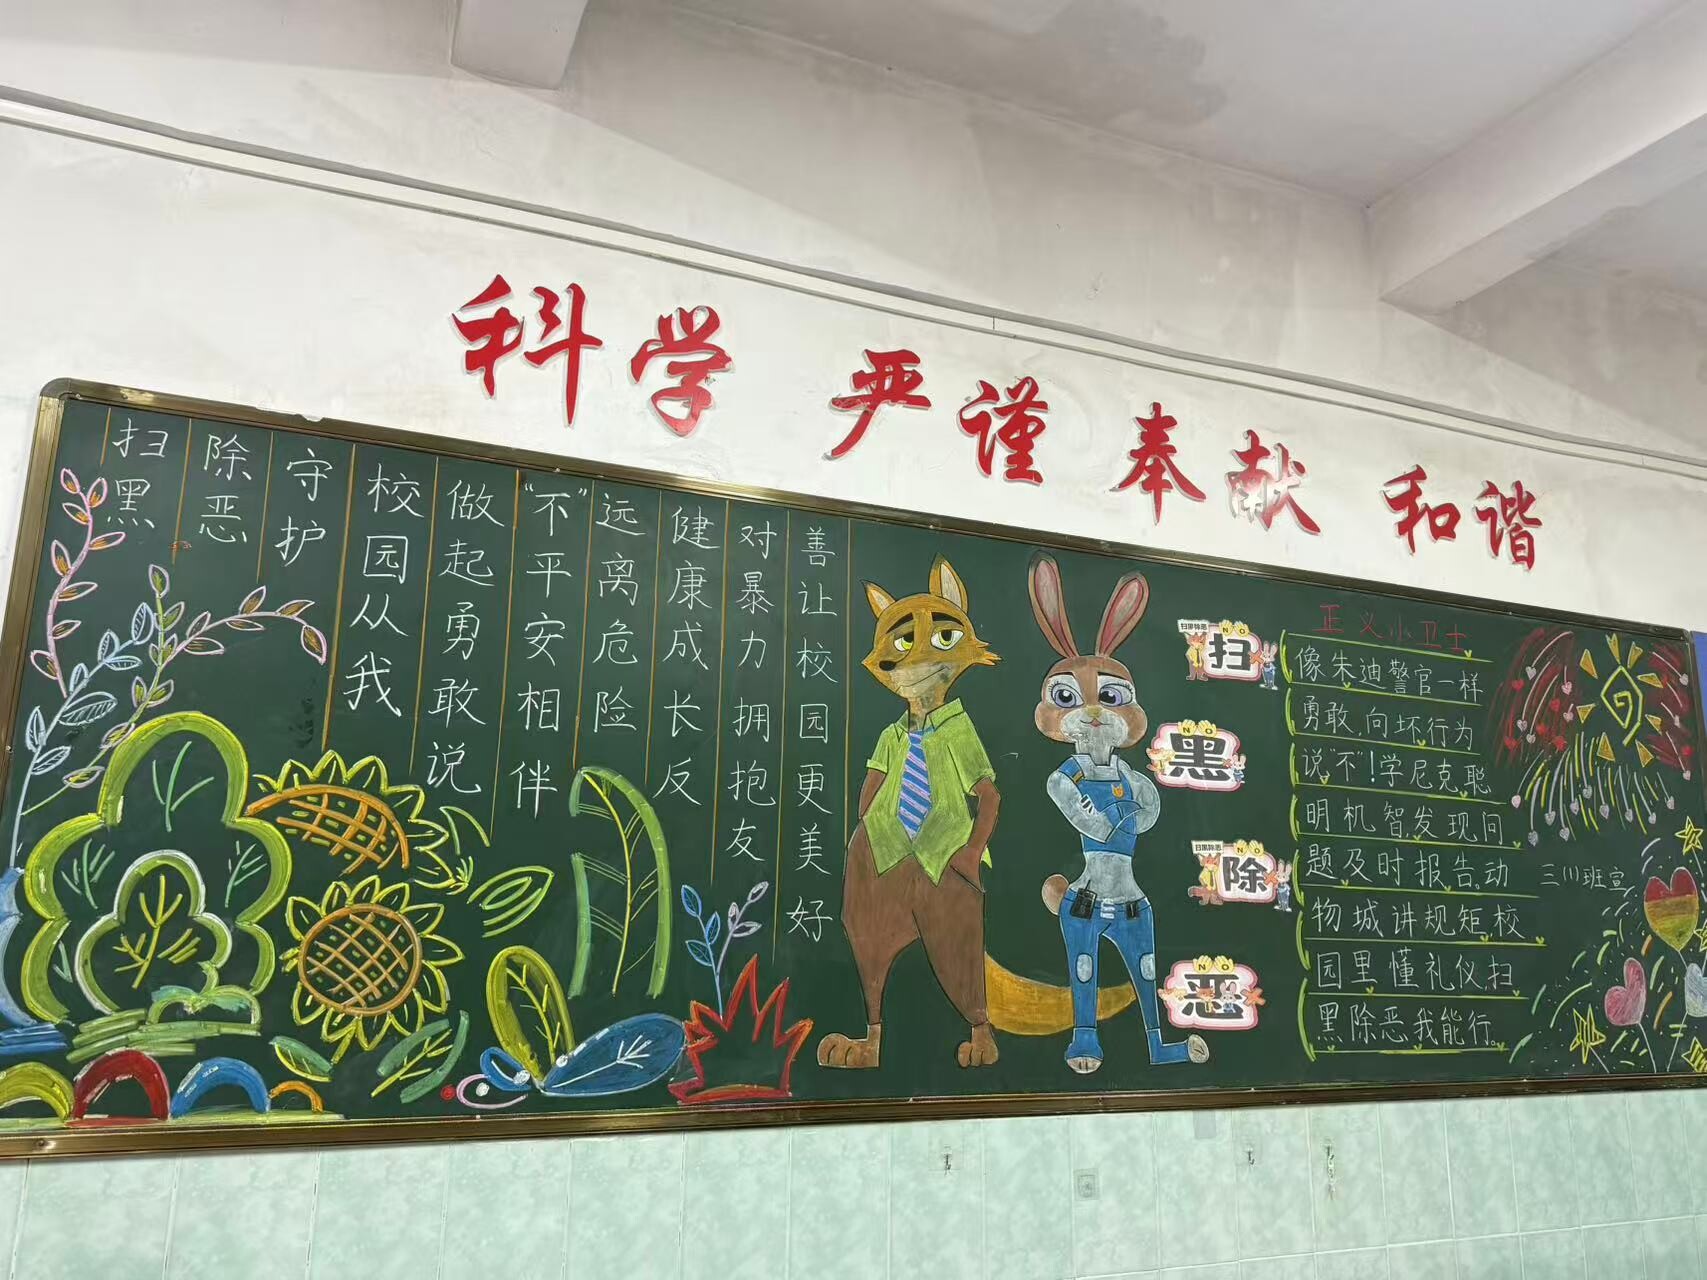 科学 严谨 奉献 和谐
扫黑
除恶
守护
校园从我
做起勇敢说
“不”平安相伴
远离危险
健康成长反
对暴力拥抱友
善让校园更美好
扫
黑
扫黑除恶
除
恶
NO
正义小卫士
像朱迪警官一样
勇敢,向坏行为
说“不”!学尼克聪
明机智,发现问
题及时报告。动
物城讲规矩,校
园里懂礼仪,扫
黑除恶我能行。
三(1)班宣